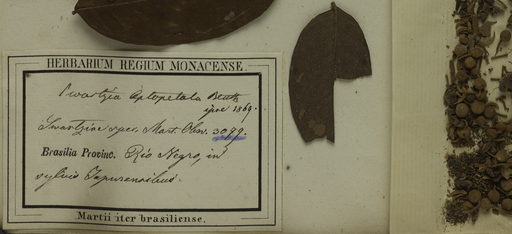 HERBARIUM REGIUM MONACENSE.
Swartzia leptopetala Benth
ipse 1869.
Swartziae spec. Mart. Obs. 3099.
Brasilia Provinc. Rio Negro, in
sylvis Japurensibus.
Martii iter brasiliense.